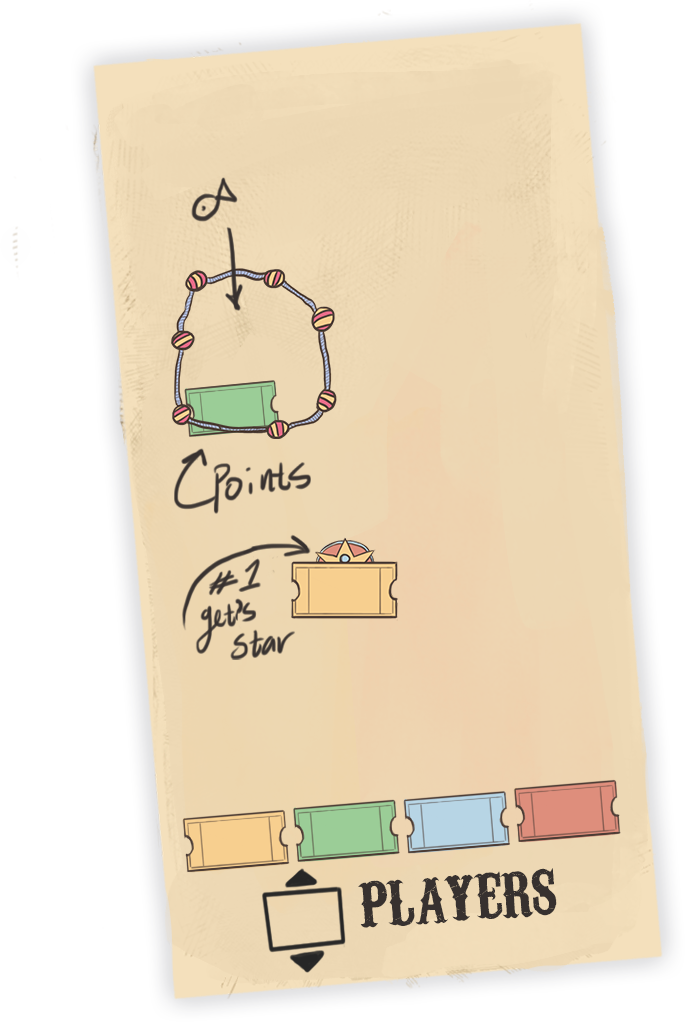 Points
#1
get's
star
PLAYERS